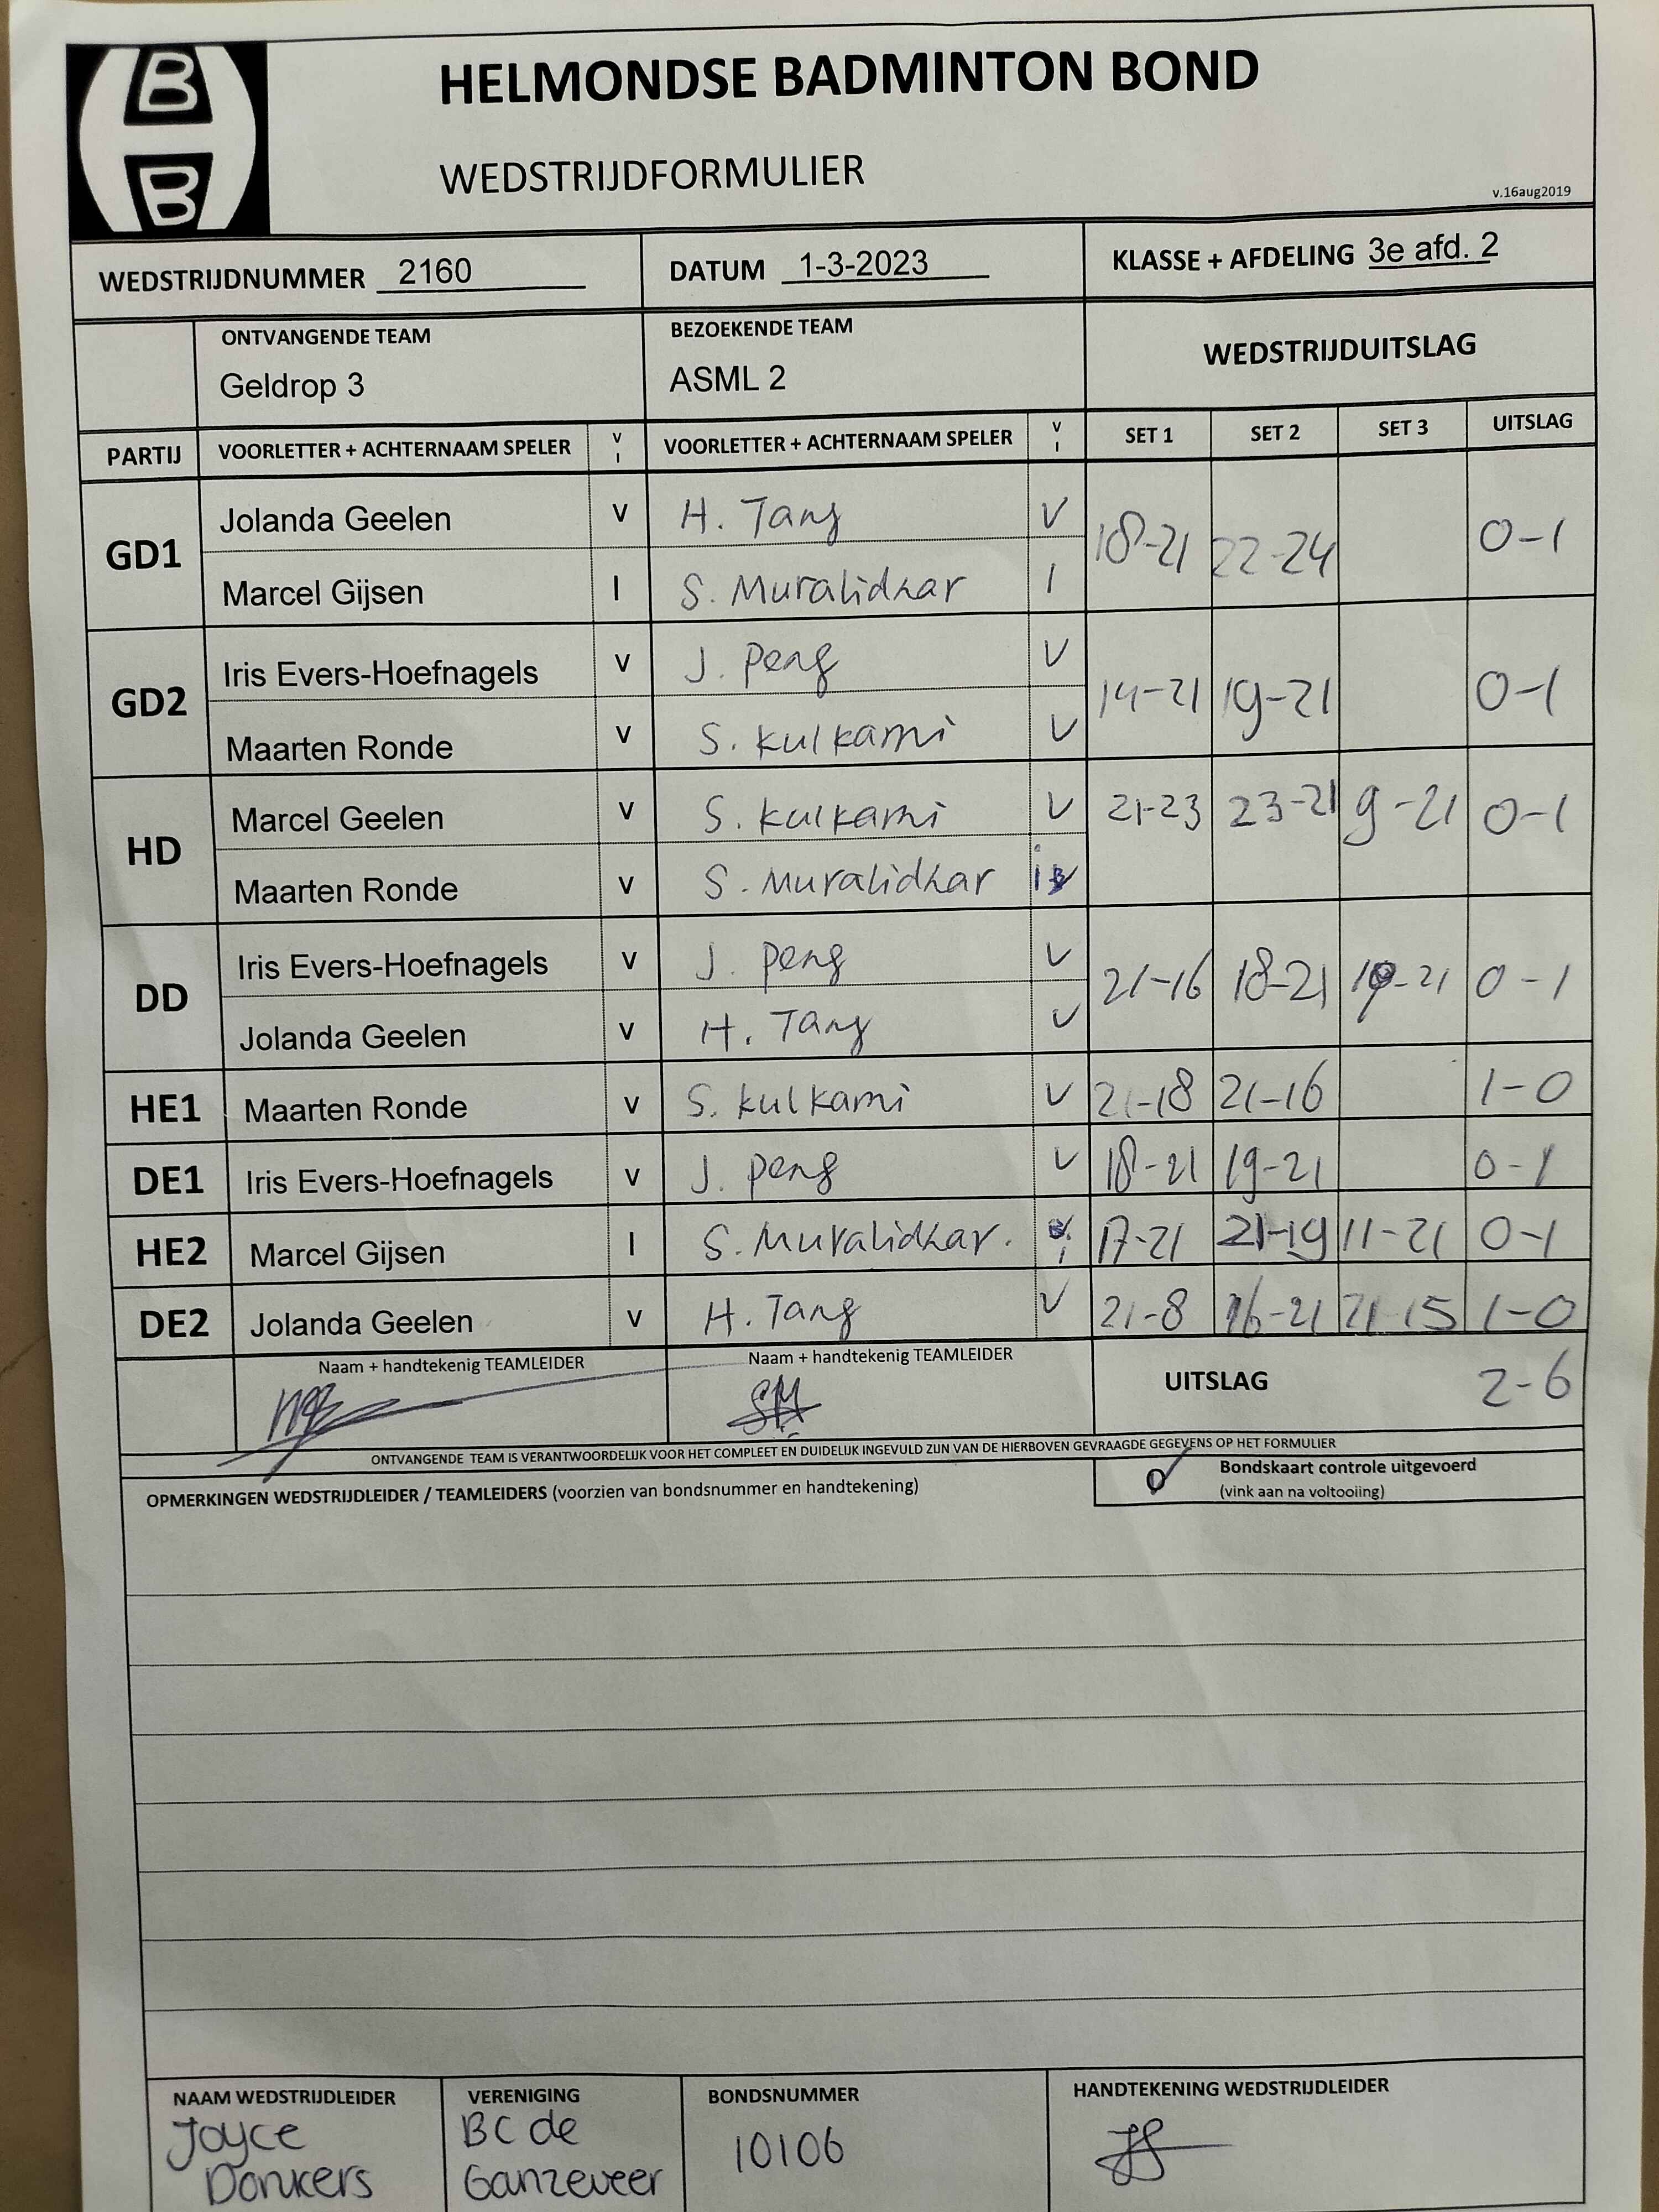 B
B
HELMONDSE BADMINTON BOND
WEDSTRIJDFORMULIER
v.16aug2019
WEDSTRIJDNUMMER 2160 DATUM 1-3-2023 KLASSE + AFDELING 3e afd. 2
ONTVANGENDE TEAM BEZOEKENDE TEAM WEDSTRIJDUITSLAG
Geldrop 3 ASML 2
PARTIJ VOORLETTER + ACHTERNAAM SPELER V I VOORLETTER + ACHTERNAAM SPELER V I SET 1 SET 2 SET 3 UITSLAG
GD1 Jolanda Geelen V H. Tang V 18-21 22-24 0-1
Marcel Gijsen I S. Muralidhar I
GD2 Iris Evers-Hoefnagels V J. Peng V 14-21 19-21 0-1
Maarten Ronde V S. Kulkarni V
HD Marcel Geelen V S. Kulkarni V 21-23 23-21 9-21 0-1
Maarten Ronde V S. Muralidhar i
DD Iris Evers-Hoefnagels V J. Peng V 21-16 18-21 -21 0-1
Jolanda Geelen V H. Tang V
HE1 Maarten Ronde V S. Kulkarni V 21-18 21-16 1-0
DE1 Iris Evers-Hoefnagels V J. Peng V 18-21 19-21 0-1
HE2 Marcel Gijsen I S. Muralidhar. I 17-21 21-19 11-21 0-1
DE2 Jolanda Geelen V H. Tang V 21-8 16-21 21-15 1-0
Naam + handtekenig TEAMLEIDER Naam + handtekenig TEAMLEIDER UITSLAG 2-6
SM
ONTVANGENDE TEAM IS VERANTWOORDELIJK VOOR HET COMPLEET EN DUIDELIJK INGEVULD ZIJN VAN DE HIERBOVEN GEVRAAGDE GEGEVENS OP HET FORMULIER
OPMERKINGEN WEDSTRIJDLEIDER / TEAMLEIDERS (voorzien van bondsnummer en handtekening) O Bondskaart controle uitgevoerd
(vink aan na voltooiing)
NAAM WEDSTRIJDLEIDER VERENIGING BONDSNUMMER HANDTEKENING WEDSTRIJDLEIDER
Joyce BC de 10106
Donkers Ganzeveer